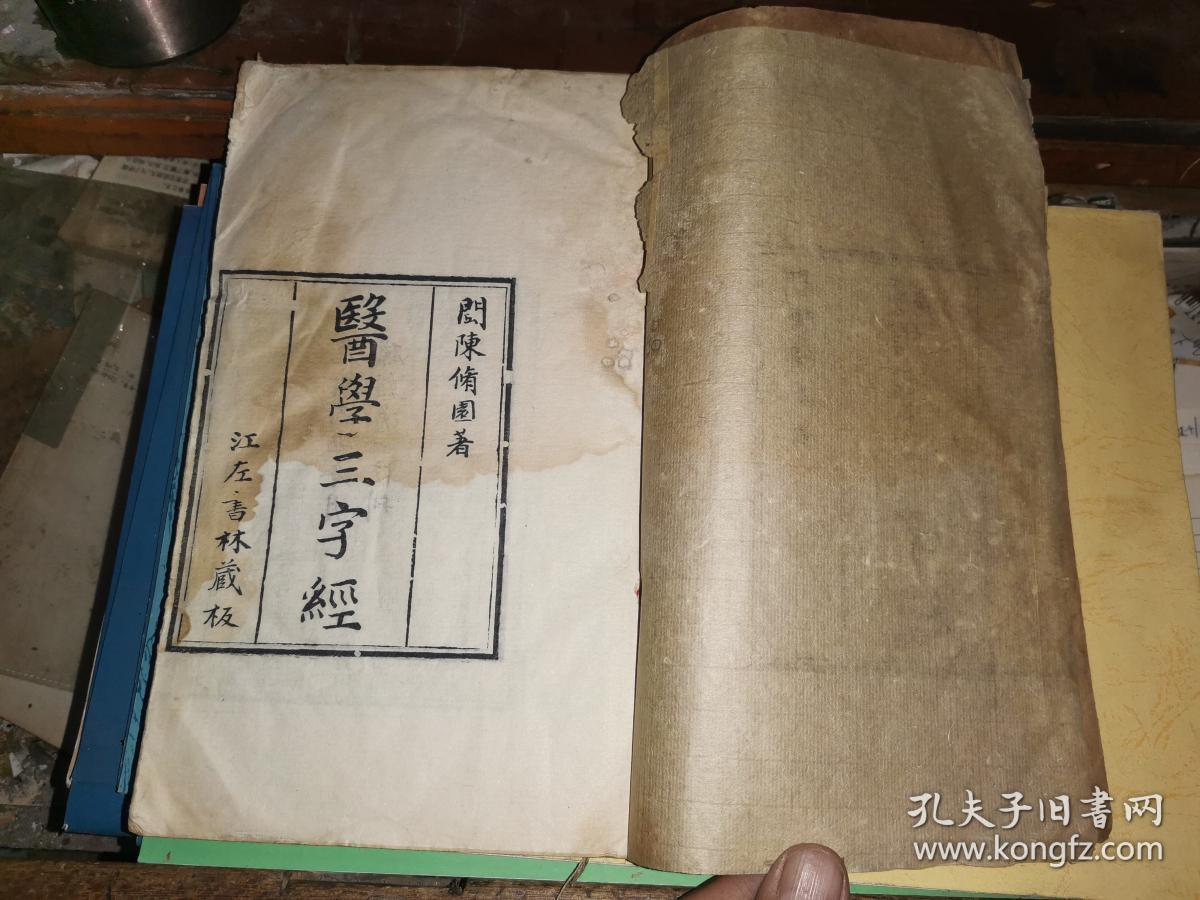 閩陳脩園著
醫學三字經
江左書林蔵板
孔夫子旧书网
www.kongfz.com